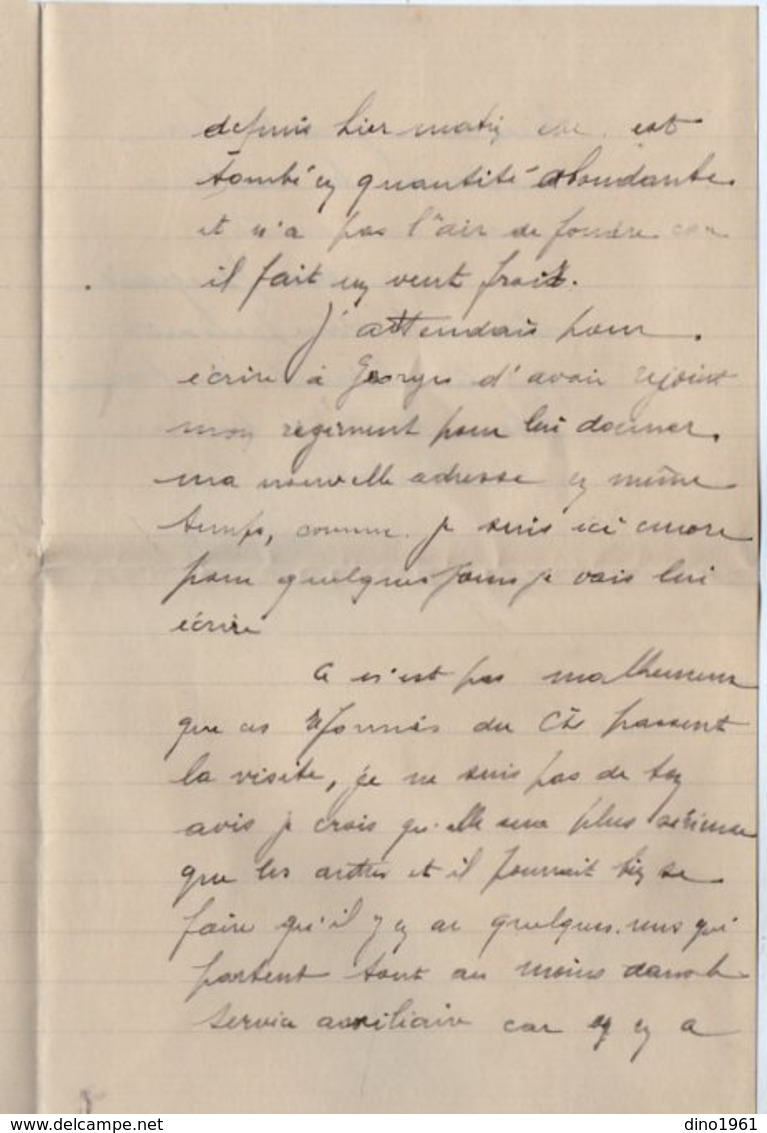 depuis hier matin elle est
tombé en quantité abondante
et n'a pas l'air de fondre car
il fait un vent froid.
J'attendais pour
écrire à Georges d'avoir rejoint
mon régiment pour lui donner
ma nouvelle adresse en même
temps, comme je suis ici encore
pour quelques jours je vais lui
écrire
Ce n'est pas malheureux
que ces réformés du Ch passent
la visite, je ne suis pas de ton
avis je crois qu'elle sera plus sérieuse
que les autres et il pourrait bien se
faire qu'il y en ai quelques-uns qui
partent tout au moins dans le
service auxiliaire car on en a
www.delcampe.net
dino1961